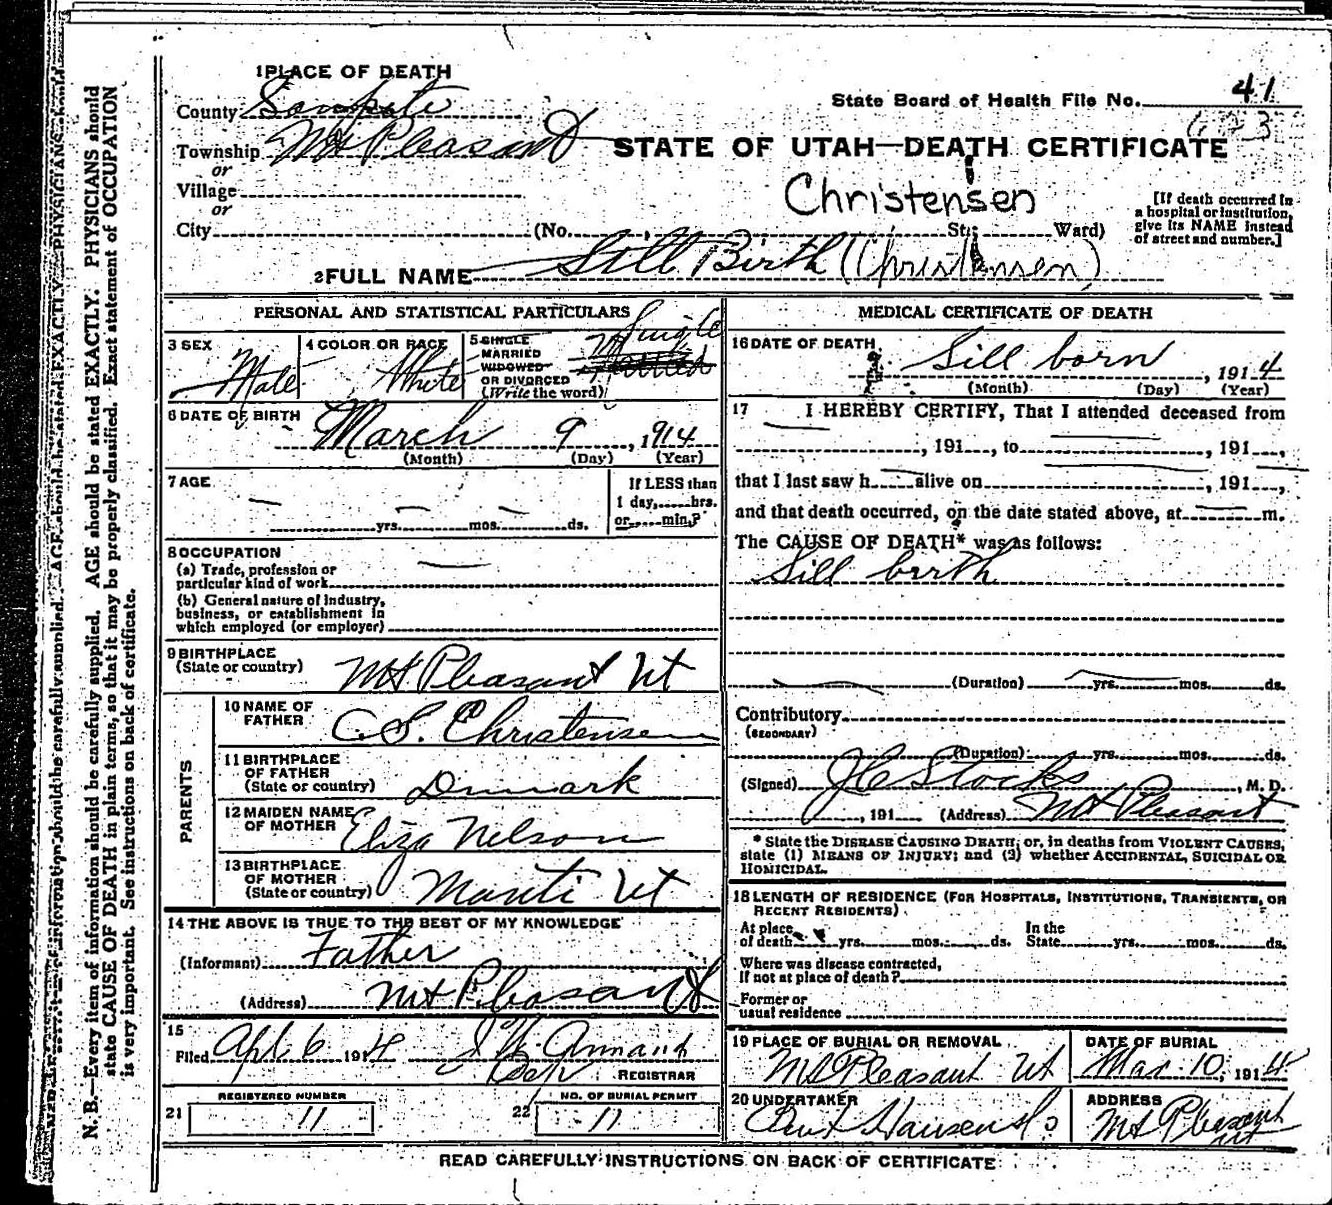 1 PLACE OF DEATH
County Sanpete
State Board of Health File No. 41
Township Mt Pleasant
STATE OF UTAH—DEATH CERTIFICATE
or
Village
Christensen
or
City (No. St; Ward)
[If death occurred in a hospital or institution, give its NAME instead of street and number.]
2 FULL NAME Still Birth (Christensen)
PERSONAL AND STATISTICAL PARTICULARS
3 SEX
Male
4 COLOR OR RACE
White
5 SINGLE
MARRIED
WIDOWED
OR DIVORCED
(Write the word)
Single
6 DATE OF BIRTH
March 9, 1914
(Month) (Day) (Year)
7 AGE
yrs. mos. ds.
If LESS than
1 day, hrs.
or min.?
8 OCCUPATION
(a) Trade, profession or
particular kind of work
(b) General nature of industry,
business, or establishment in
which employed (or employer)
9 BIRTHPLACE
(State or country) Mt Pleasant Ut
PARENTS
10 NAME OF
FATHER C. S. Christensen
11 BIRTHPLACE
OF FATHER
(State or country) Denmark
12 MAIDEN NAME
OF MOTHER Eliza Nelson
13 BIRTHPLACE
OF MOTHER
(State or country) Manti Ut
14 THE ABOVE IS TRUE TO THE BEST OF MY KNOWLEDGE
(Informant) Father
(Address) Mt Pleasant
15
Filed Apl. 6 1914
REGISTRAR
REGISTERED NUMBER
21 11
NO. OF BURIAL PERMIT
22 11
MEDICAL CERTIFICATE OF DEATH
16 DATE OF DEATH
Sill born, 1914
(Month) (Day) (Year)
17 I HEREBY CERTIFY, That I attended deceased from
, 191, to , 191,
that I last saw h alive on , 191,
and that death occurred, on the date stated above, at m.
The CAUSE OF DEATH* was as follows:
Sill birth
(Duration) yrs. mos. ds.
Contributory
(SECONDARY)
(Duration) yrs. mos. ds.
(Signed) J C Stocks, M. D.
, 191 (Address) Mt Pleasant
* State the DISEASE CAUSING DEATH; or, in deaths from VIOLENT CAUSES,
state (1) MEANS OF INJURY; and (2) whether ACCIDENTAL, SUICIDAL OR
HOMICIDAL.
18 LENGTH OF RESIDENCE (FOR HOSPITALS, INSTITUTIONS, TRANSIENTS, OR
RECENT RESIDENTS).
At place In the
of death yrs. mos. ds. State yrs. mos. ds.
Where was disease contracted,
If not at place of death?
Former or
usual residence
19 PLACE OF BURIAL OR REMOVAL
Mt Pleasant Ut
DATE OF BURIAL
Mar. 10, 1914
20 UNDERTAKER
ADDRESS
Mt Pleasant
Ut
READ CAREFULLY INSTRUCTIONS ON BACK OF CERTIFICATE
N. B.—Every item of information should be carefully supplied. AGE should be stated EXACTLY. PHYSICIANS should
state CAUSE OF DEATH in plain terms, so that it may be properly classified. Exact statement of OCCUPATION
is very important. See instructions on back of certificate.